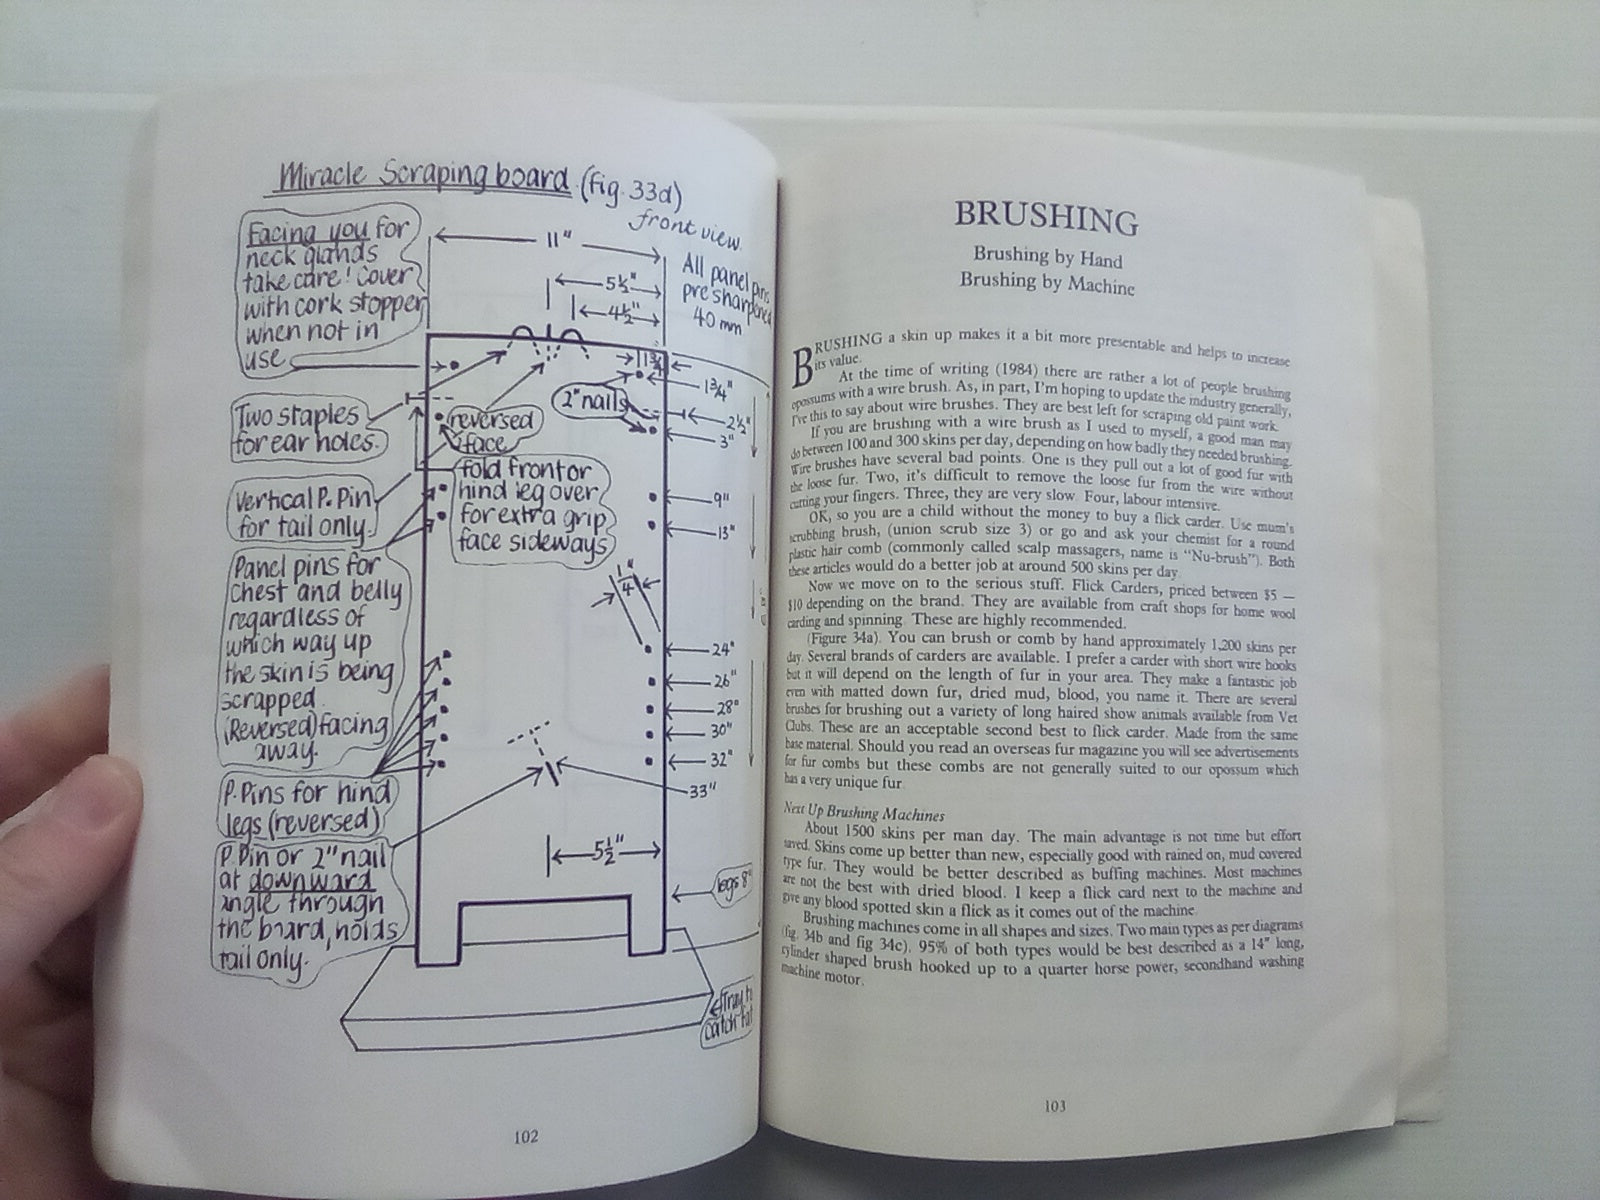 Miracle Scraping board (fig. 33d)
front view.
Facing you for
neck glands
take care! Cover
with cork stopper
when not in
use
11"
5½"
4½"
All panel pins
pre sharpened
40 mm
1¾"
1¾"
2" nails
2½"
3"
Two staples
for ear holes.
reversed
face
fold front or
hind leg over
for extra grip
face sideways
Vertical P. Pin
for tail only.
9"
13"
¼"
Panel pins for
chest and belly
regardless of
which way up
the skin is being
scrapped.
(Reversed) facing
away.
24"
26"
28"
30"
32"
33"
P. Pins for hind
legs (reversed)
P. Pin or 2" nail
at downward
angle through
the board, holds
tail only.
5½"
legs 8"
Tray to
catch fat
102
BRUSHING
Brushing by Hand
Brushing by Machine
BRUSHING a skin up makes it a bit more presentable and helps to increase
its value.
At the time of writing (1984) there are rather a lot of people brushing
opossums with a wire brush. As, in part, I'm hoping to update the industry generally,
I've this to say about wire brushes. They are best left for scraping old paint work.
If you are brushing with a wire brush as I used to myself, a good man may
do between 100 and 300 skins per day, depending on how badly they needed brushing.
Wire brushes have several bad points. One is they pull out a lot of good fur with
the loose fur. Two, it's difficult to remove the loose fur from the wire without
cutting your fingers. Three, they are very slow. Four, labour intensive.
OK, so you are a child without the money to buy a flick carder. Use mum's
scrubbing brush, (union scrub size 3) or go and ask your chemist for a round
plastic hair comb (commonly called scalp massagers, name is "Nu-brush"). Both
these articles would do a better job at around 500 skins per day.
Now we move on to the serious stuff. Flick Carders, priced between $5 —
$10 depending on the brand. They are available from craft shops for home wool
carding and spinning. These are highly recommended.
(Figure 34a). You can brush or comb by hand approximately 1,200 skins per
day. Several brands of carders are available. I prefer a carder with short wire hooks
but it will depend on the length of fur in your area. They make a fantastic job
even with matted down fur, dried mud, blood, you name it. There are several
brushes for brushing out a variety of long haired show animals available from Vet
Clubs. These are an acceptable second best to flick carder. Made from the same
base material. Should you read an overseas fur magazine you will see advertisements
for fur combs but these combs are not generally suited to our opossum which
has a very unique fur.
Next Up Brushing Machines
About 1500 skins per man day. The main advantage is not time but effort
saved. Skins come up better than new, especially good with rained on, mud covered
type fur. They would be better described as buffing machines. Most machines
are not the best with dried blood. I keep a flick card next to the machine and
give any blood spotted skin a flick as it comes out of the machine.
Brushing machines come in all shapes and sizes. Two main types as per diagrams
(fig. 34b and fig 34c). 95% of both types would be best described as a 14" long,
cylinder shaped brush hooked up to a quarter horse power, secondhand washing
machine motor.
103